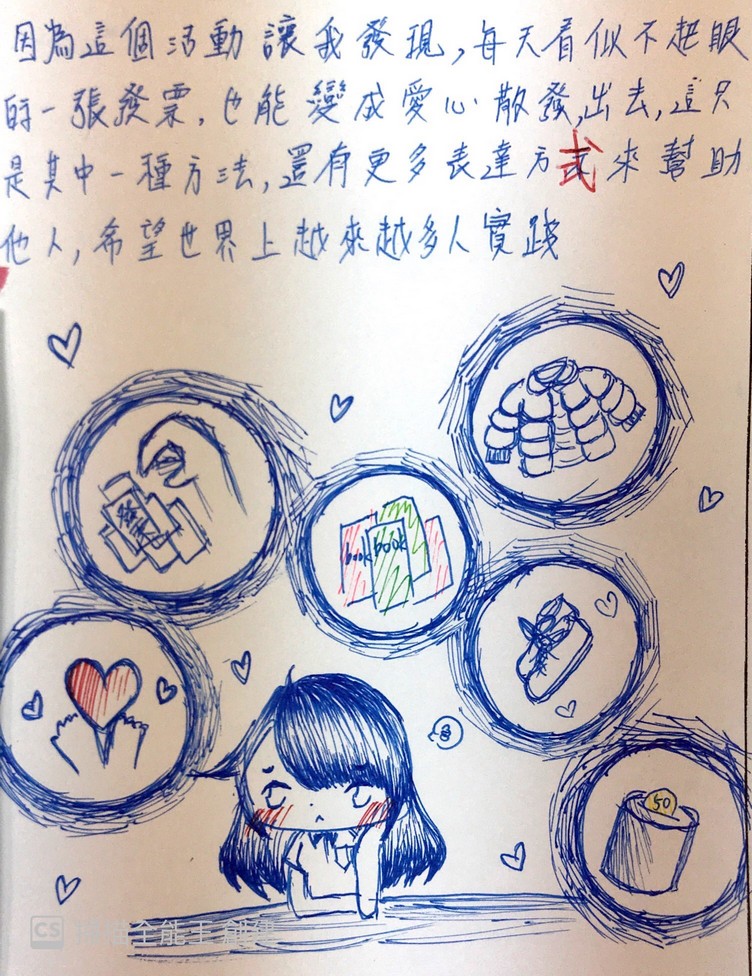 因為這個活動讓我發現,每天看似不起眼
的一張發票,也能變成愛心散發出去,這只
是其中一種方法,還有更多表達方式來幫助
他人,希望世界上越來越多人實踐
發票
book book
50
CS 掃描全能王 創建